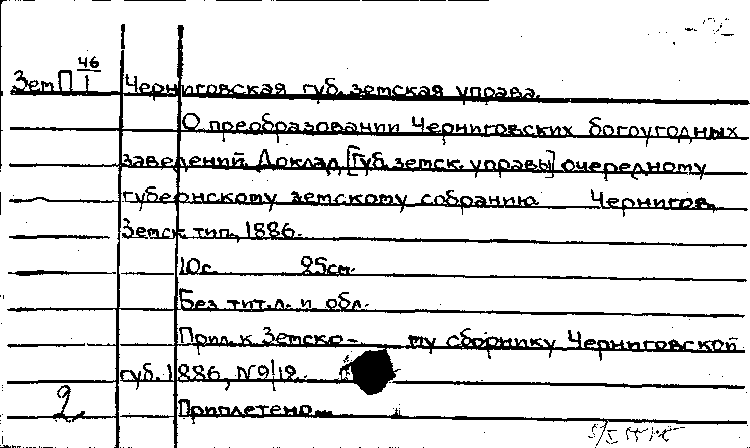 46
Зем П 1 Черниговская губ. земская управа.
О преобразовании Черниговских богоугодных
заведений. Доклад [губ. земск. управы] очередному
губернскому земскому собранию Чернигов,
Земск. тип., 1886.
10с. 25см.
Без тит. л. и обл.
Прил. к Земско- му сборнику Черниговской
губ. 1886, №9/12.
2 Приплетено